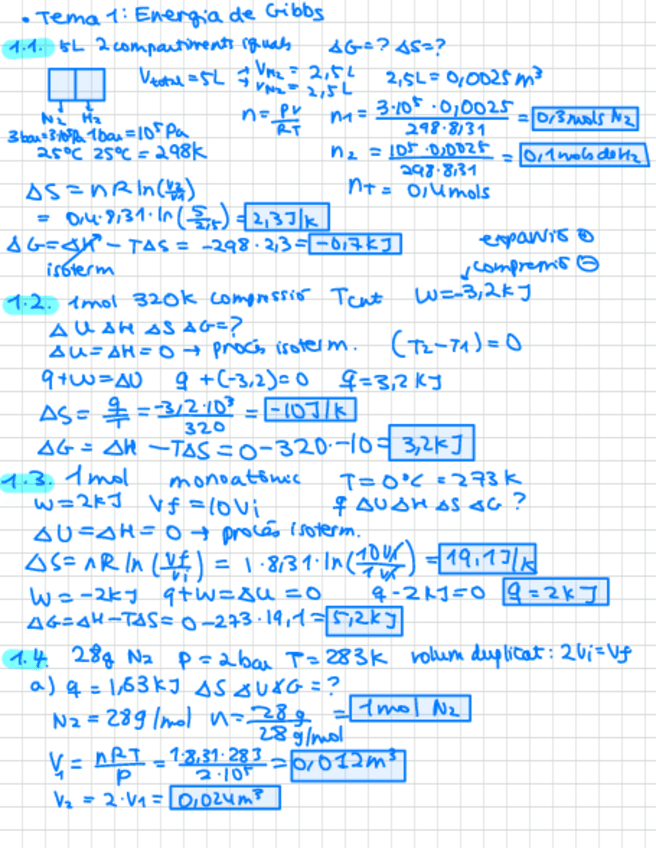 • Tema 1: Energia de Gibbs
1.1. 5L 2 compartiments iguals ΔG=? ΔS=?
Vtotal = 5L → VH2 = 2,5L 2,5L = 0,0025 m³
→ VN2 = 2,5L
N2 H2 n = PV/RT n1 = 3·10⁵ · 0,0025 / 298·8,31 = 0,3 mols N2
3bar=3·10⁵Pa 1bar=10⁵Pa
25°C 25°C = 298K n2 = 10⁵ · 0,0025 / 298·8,31 = 0,1 mols de H2
ΔS = nR ln(V2/V1) nT = 0,4 mols
= 0,4·8,31·ln(5/2,5) = 2,3J/K
ΔG = ΔH - TΔS = -298·2,3 = -0,7KJ expansió ⊕
isoterm compressió ⊖
1.2. 1mol 320K compressió Tcnt W=-3,2KJ
ΔU ΔH ΔS ΔG=?
ΔU = ΔH = 0 → procés isoterm. (T2-T1) = 0
q+W=ΔU q+(-3,2)=0 q=3,2KJ
ΔS = q/T = -3,2·10³/320 = -10J/K
ΔG = ΔH - TΔS = 0-320·-10 = 3,2KJ
1.3. 1mol monoatòmic T=0°C = 273K
W=2KJ Vf=10Vi q ΔU ΔH ΔS ΔG ?
ΔU = ΔH = 0 → procés isoterm.
ΔS = nR ln (Vf/Vi) = 1·8,31·ln(10Vi/1Vi) = 19,1J/K
W = -2KJ q+W=ΔU = 0 q-2KJ=0 q=2KJ
ΔG=ΔH-TΔS= 0-273·19,1 = 5,2KJ
1.4. 28g N2 P = 2bar T=283K volum duplicat: 2Vi=Vf
a) q = 1,63KJ ΔS ΔU ΔG = ?
N2 = 28g/mol n = 28g / 28g/mol = 1mol N2
V1 = nRT/P = 1·8,31·283 / 2·10⁵ = 0,012m³
V2 = 2·V1 = 0,024m³